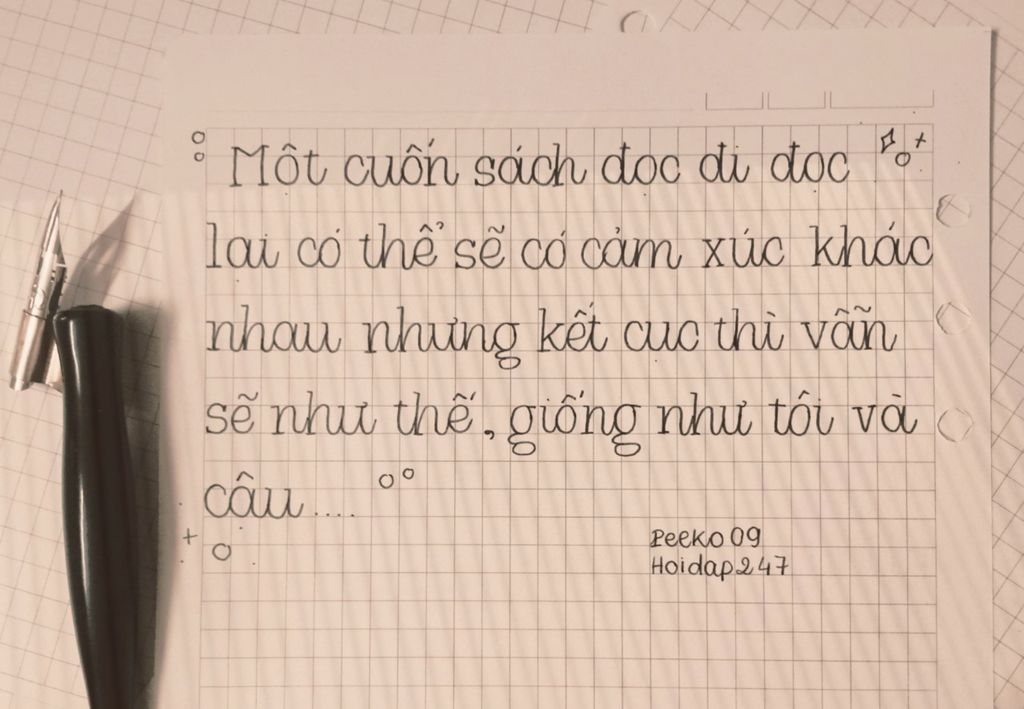 Một cuốn sách đọc đi đọc
lại có thể sẽ có cảm xúc khác
nhau nhưng kết cục thì vẫn
sẽ như thế, giống như tôi và
cậu....
Peeko 09
Hoidap247